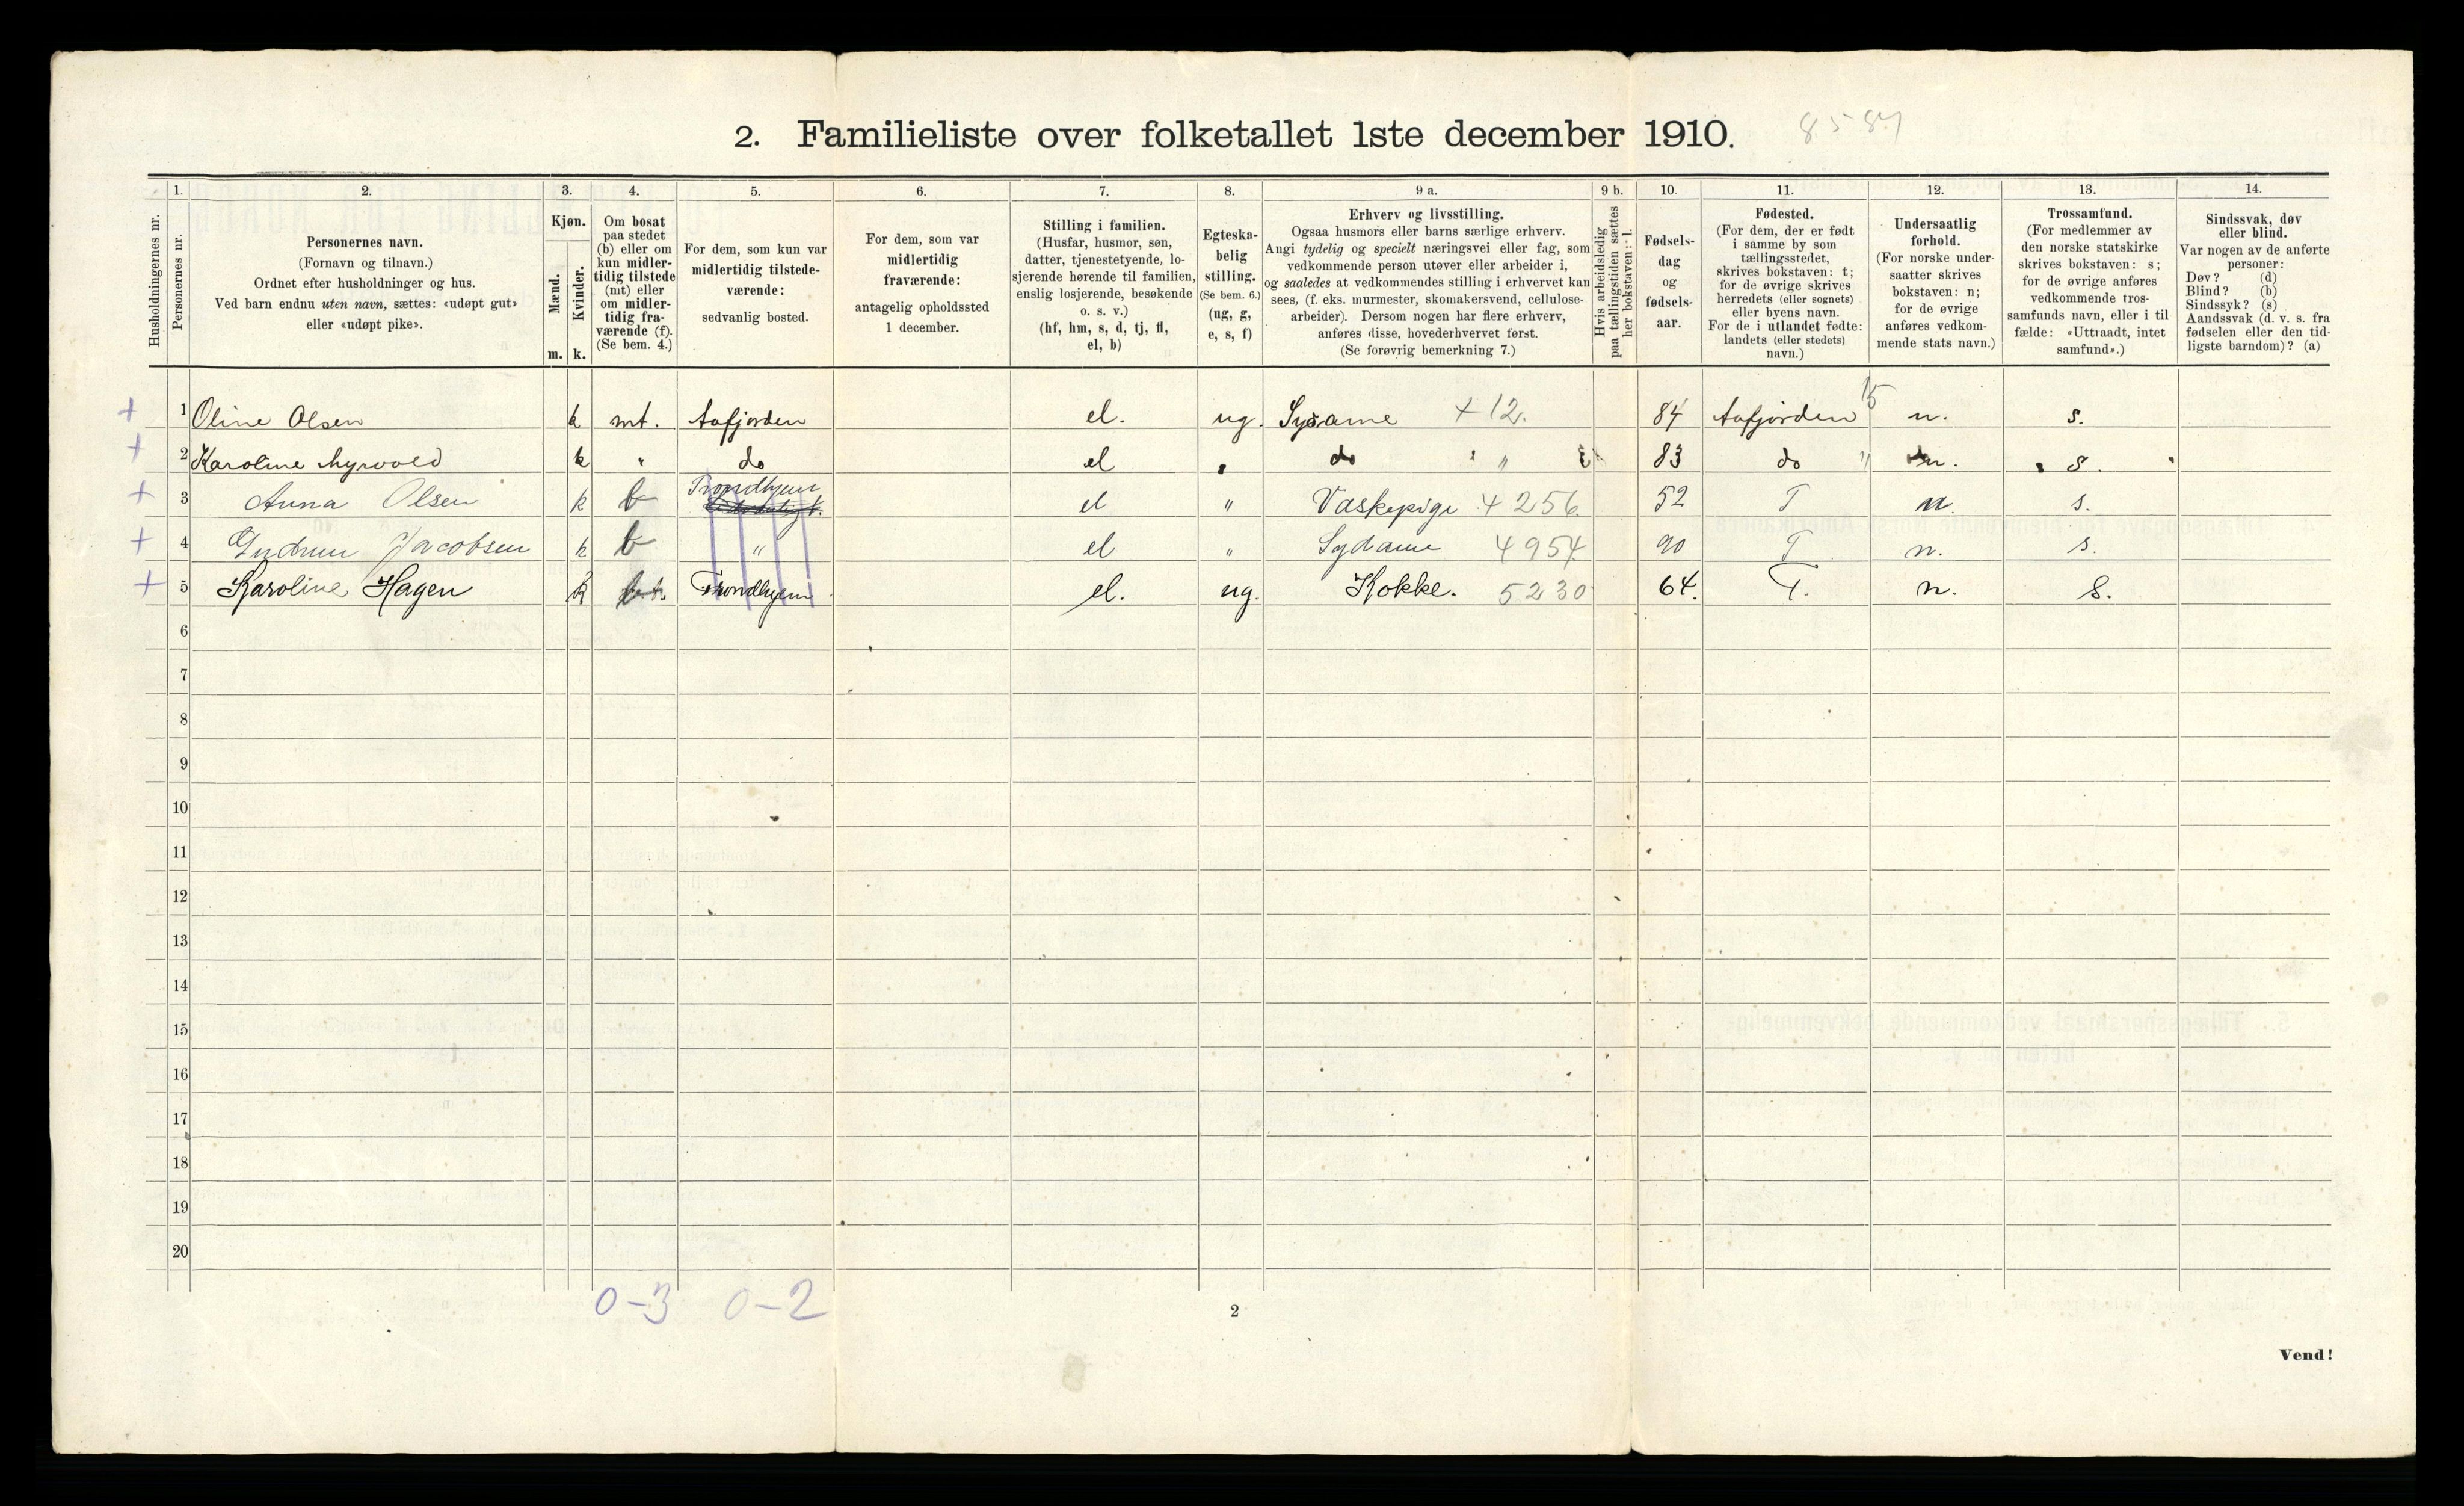 2. Familieliste over folketallet 1ste december 1910.
8587
1. 2. 3. 4. 5. 6. 7. 8. 9 a. 9 b. 10. 11. 12. 13. 14.
Husholdningernes nr.
Personernes nr.
Personernes navn.
(Fornavn og tilnavn.)
Ordnet efter husholdninger og hus.
Ved barn endnu uten navn, sættes: «udøpt gut»
eller «udøpt pike».
Kjøn.
Mænd.
Kvinder.
m. k.
Om bosat
paa stedet
(b) eller om
kun midler-
tidig tilstede
(mt) eller
om midler-
tidig fra-
værende (f).
(Se bem. 4.)
For dem, som kun var
midlertidig tilstede-
værende:
sedvanlig bosted.
For dem, som var
midlertidig
fraværende:
antagelig opholdssted
1 december.
Stilling i familien.
(Husfar, husmor, søn,
datter, tjenestetyende, lo-
sjerende hørende til familien,
enslig losjerende, besøkende
o. s. v.)
(hf, hm, s, d, tj, fl,
el, b)
Egteska-
belig
stilling.
(Se bem. 6.)
(ug, g,
e, s, f)
Erhverv og livsstilling.
Ogsaa husmors eller barns særlige erhverv.
Angi tydelig og specielt næringsvei eller fag, som
vedkommende person utøver eller arbeider i,
og saaledes at vedkommendes stilling i erhvervet kan
sees, (f. eks. murmester, skomakersvend, cellulose-
arbeider). Dersom nogen har flere erhverv,
anføres disse, hovederhvervet først.
(Se forøvrig bemerkning 7.)
Hvis arbeidsledig
paa tællingstiden sættes
her bokstaven: l.
Fødsels-
dag
og
fødsels-
aar.
Fødested.
(For dem, der er født
i samme by som
tællingsstedet,
skrives bokstaven: t;
for de øvrige skrives
herredets (eller sognets)
eller byens navn.
For de i utlandet fødte:
landets (eller stedets)
navn.)
Undersaatlig
forhold.
(For norske under-
saatter skrives
bokstaven: n;
for de øvrige
anføres vedkom-
mende stats navn.)
Trossamfund.
(For medlemmer av
den norske statskirke
skrives bokstaven: s;
for de øvrige anføres
vedkommende tros-
samfunds navn, eller i til
fælde: «Uttraadt, intet
samfund».)
Sindssvak, døv
eller blind.
Var nogen av de anførte
personer:
Døv? (d)
Blind? (b)
Sindssyk? (s)
Aandssvak (d. v. s. fra
fødselen eller den tid-
ligste barndom)? (a)
+ 1 Oline Olsen k mt. Aafjorden el. ug. Sydame + 12. 84 Aafjorden 15 n. s.
+ 2 Karoline Myrvold k " do el " do " " 83 do " n. s.
+ 3 Anna Olsen k b Trondhjem el " Vaskepige 4256 52 T n. s.
+ 4 Gudrun Jacobsen k b " el " Sydame 4954 90 T n. s.
+ 5 Karoline Hagen k Trondhjem el. ug. Kokke. 5230 64. T. n. s.
6
7
8
9
10
11
12
13
14
15
16
17
18
19
20
0-3 0-2
2
Vend!